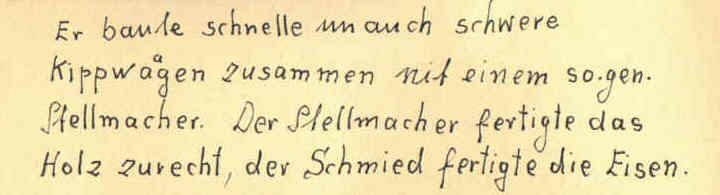 Er baute schnelle un auch schwere
Kippwägen zusammen mit einem so.gen.
Stellmacher. Der Stellmacher fertigte das
Holz zurecht, der Schmied fertigte die Eisen.